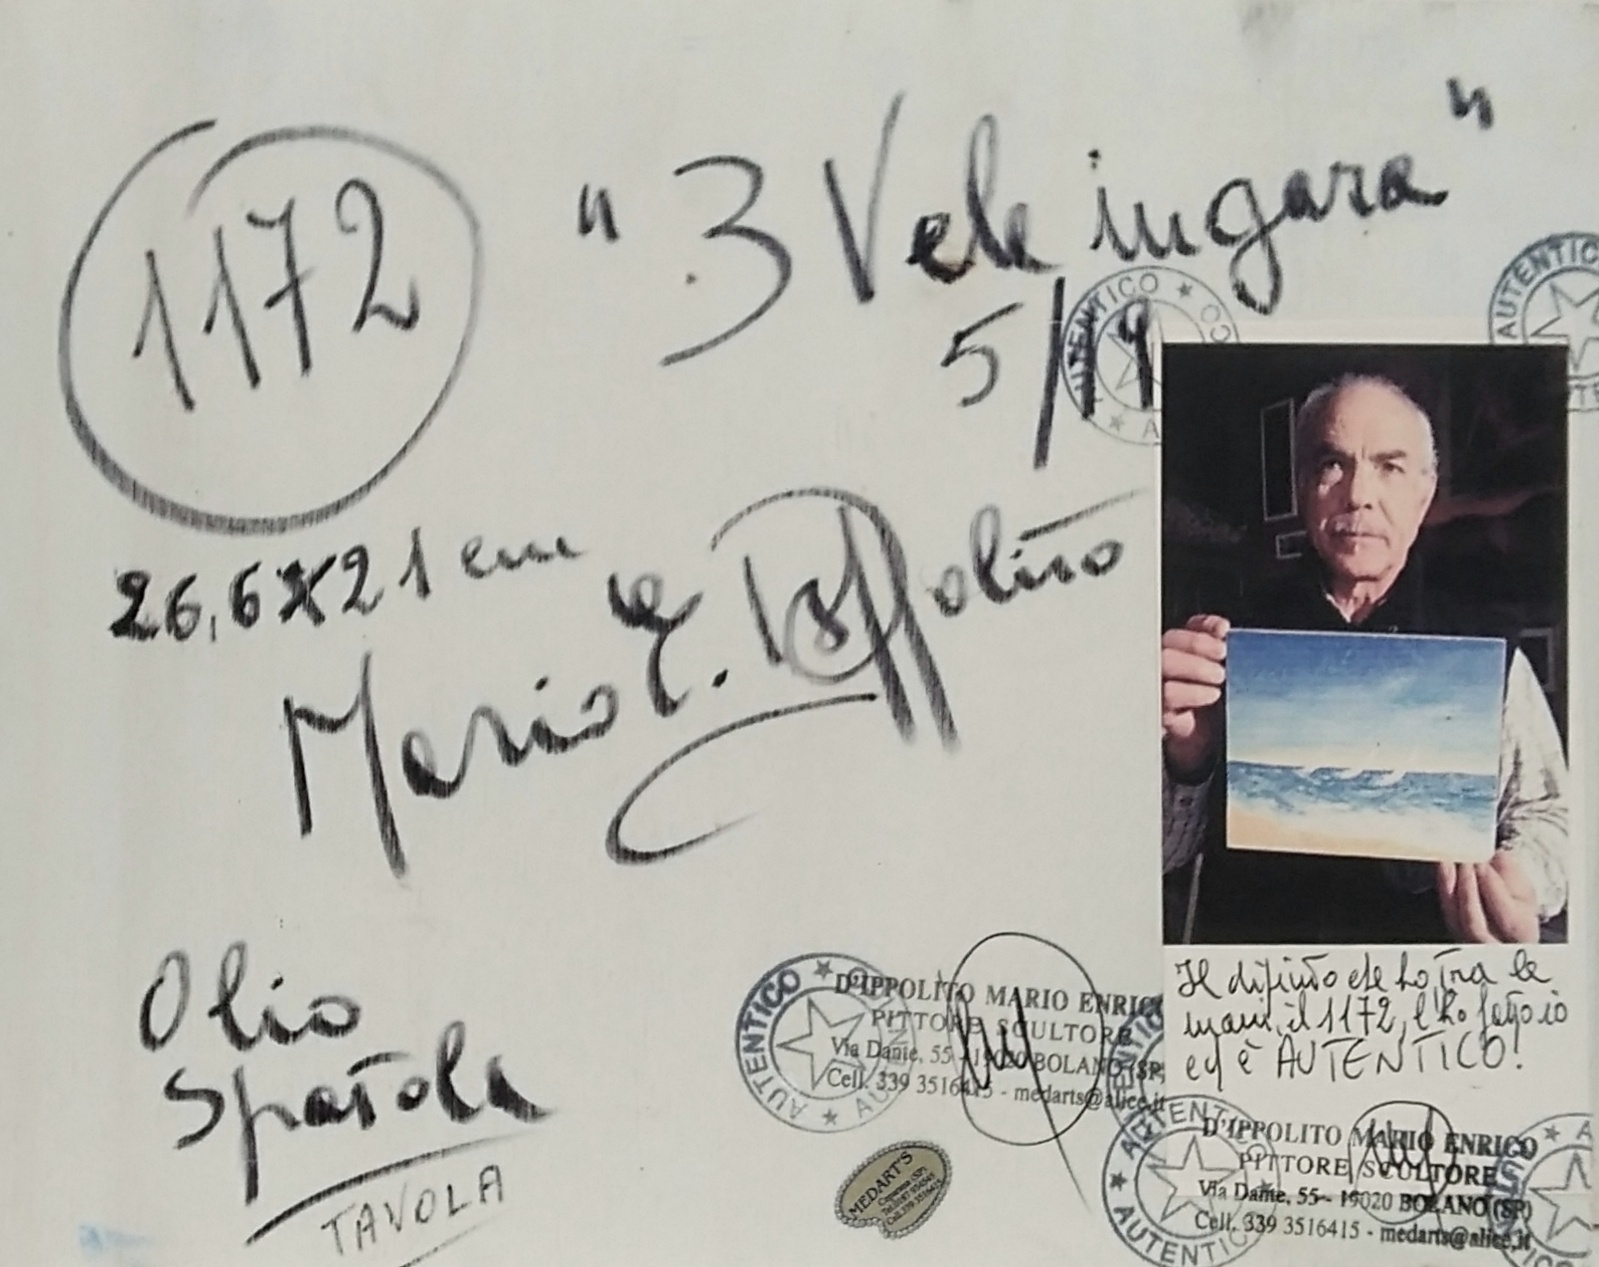 1172
"3 Vele in gara"
5/19
26,6x21 cm
Mario E. D'Ippolito
Olio
Spatola
TAVOLA
AUTENTICO
AUTENTICO
AUTENTICO
D'IPPOLITO MARIO ENRICO
PITTORE SCULTORE
Via Dante, 55 - 19020 BOLANO (SP)
Cell. 339 3516415 - medarts@alice.it
MEDART'S
Il dipinto che ho tra le
mani, il 1172, l'ho fatto io
ed è AUTENTICO!
D'IPPOLITO MARIO ENRICO
PITTORE SCULTORE
Via Dante, 55 - 19020 BOLANO (SP)
Cell. 339 3516415 - medarts@alice.it
AUTENTICO
AUTENTICO